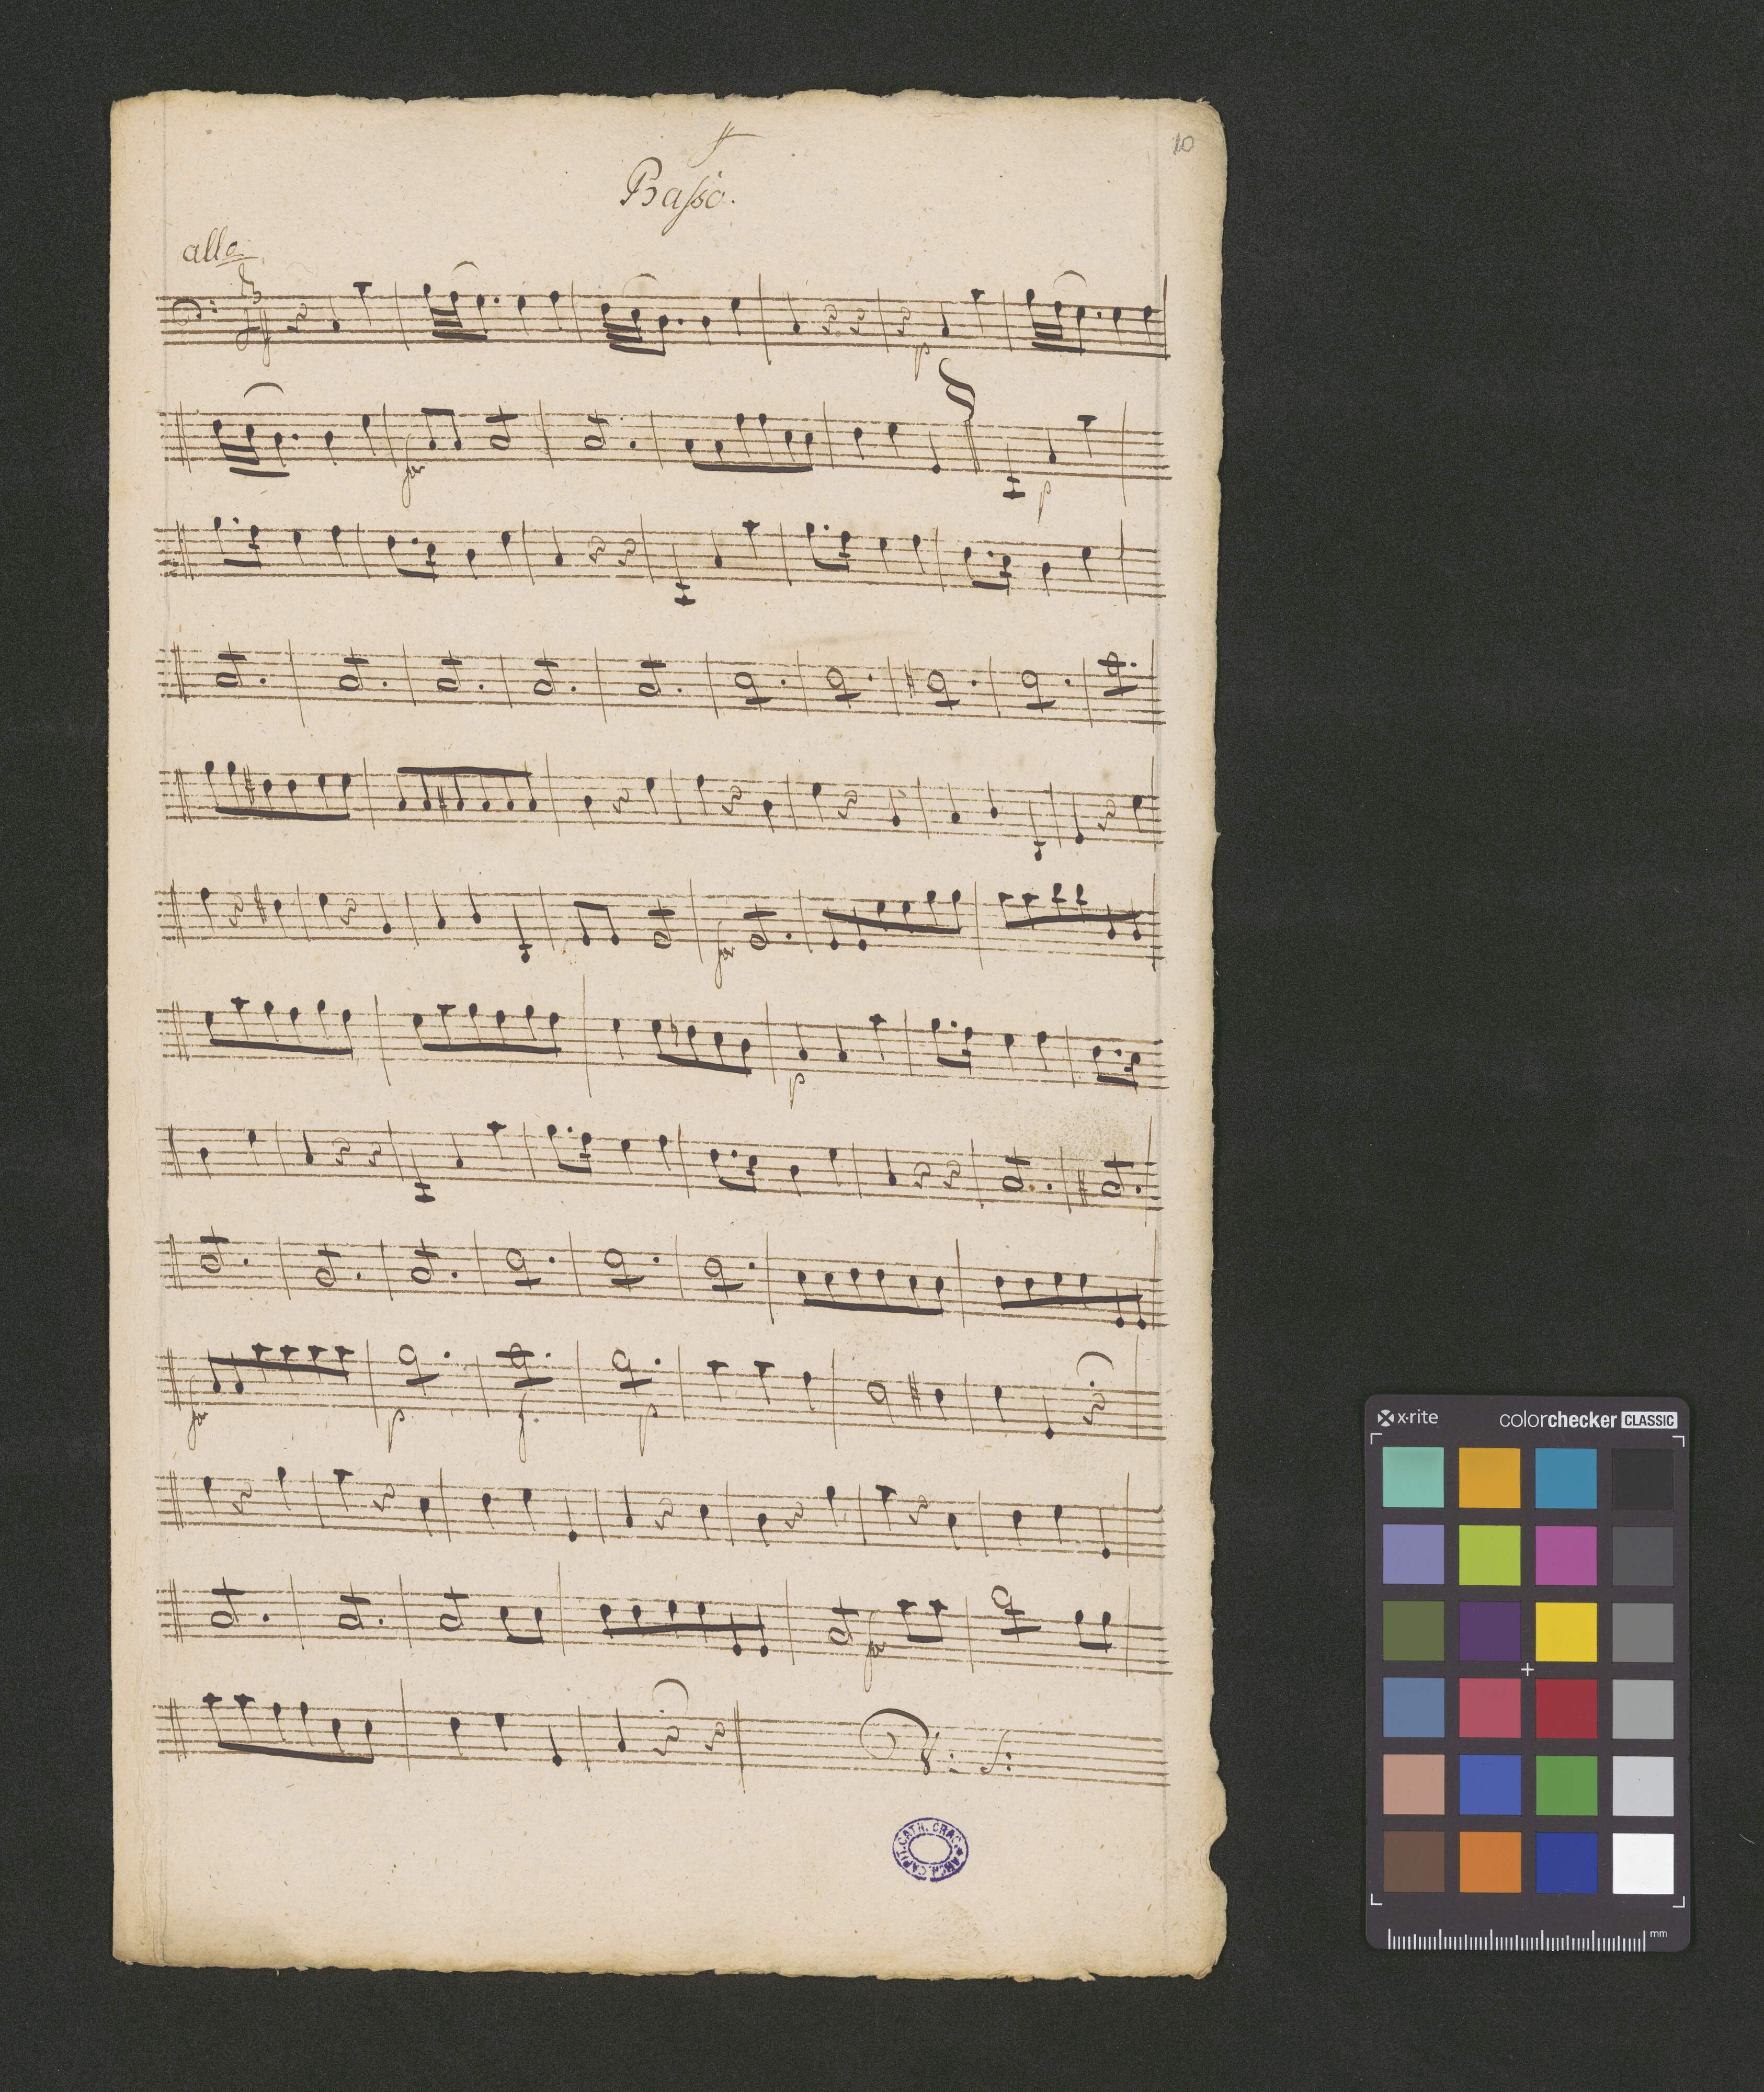 10
Basso.
allo
p
for
p
for
p
for
p
f.
p
for
V: S:
ARCH. CAPIT. CATH. CRAC.
x-rite
colorchecker CLASSIC
mm